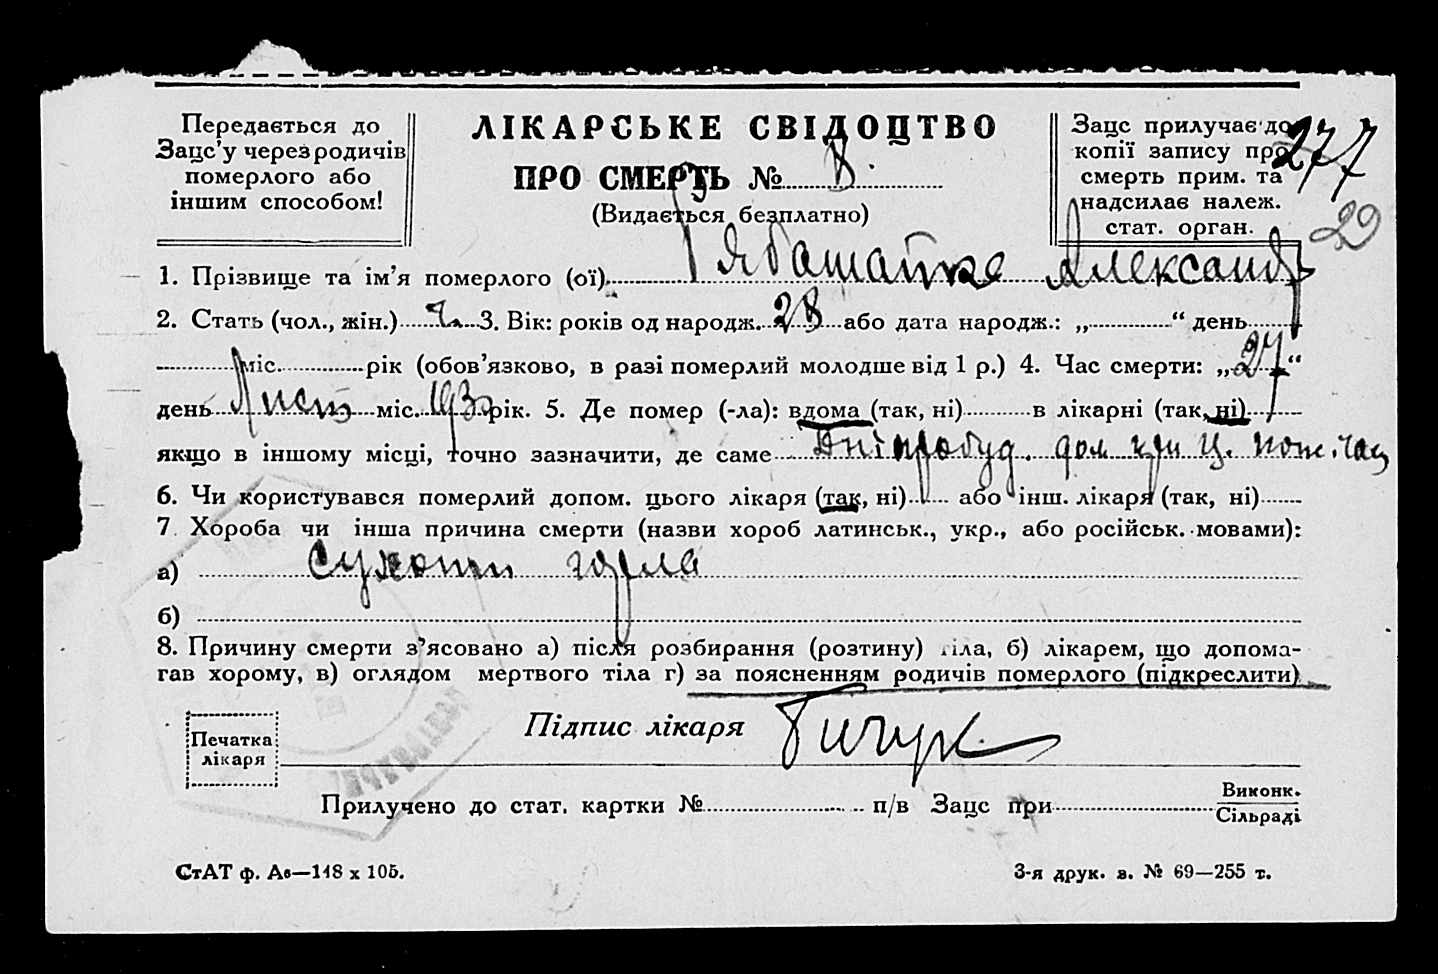 Передається до
Зацс'у через родичів
померлого або
іншим способом!
ЛІКАРСЬКЕ СВІДОЦТВО
ПРО СМЕРТЬ № 8.
(Видається безплатно)
Зацс прилучає до
копії запису про
смерть прим. та
надсилає належ.
стат. орган.
277
29
1. Прізвище та ім'я померлого (ої) Александр
2. Стать (чол., жін.) ч. 3. Вік: років од народж. 28 або дата народж.: „ “ день
міс. рік (обов'язково, в разі померлий молодше від 1 р.) 4. Час смерти: „27“
день Лист міс. 193 рік. 5. Де помер (-ла): вдома (так, ні) в лікарні (так, ні)
якщо в іншому місці, точно зазначити, де саме Дніпробуд. дом при ц.
6. Чи користувався померлий допом. цього лікаря (так, ні) або інш. лікаря (так, ні)
7. Хороба чи інша причина смерти (назви хороб латинськ., укр., або російськ. мовами):
а) Сухоти горла
б)
8. Причину смерти з'ясовано а) після розбирання (розтину) тіла, б) лікарем, що допома-
гав хорому, в) оглядом мертвого тіла г) за поясненням родичів померлого (підкреслити)
Печатка
лікаря
Підпис лікаря
Прилучено до стат. картки № п/в Зацс при Виконк.
Сільраді
СтАТ ф. Ав—148 х 105.
3-я друк. з. № 69—255 т.